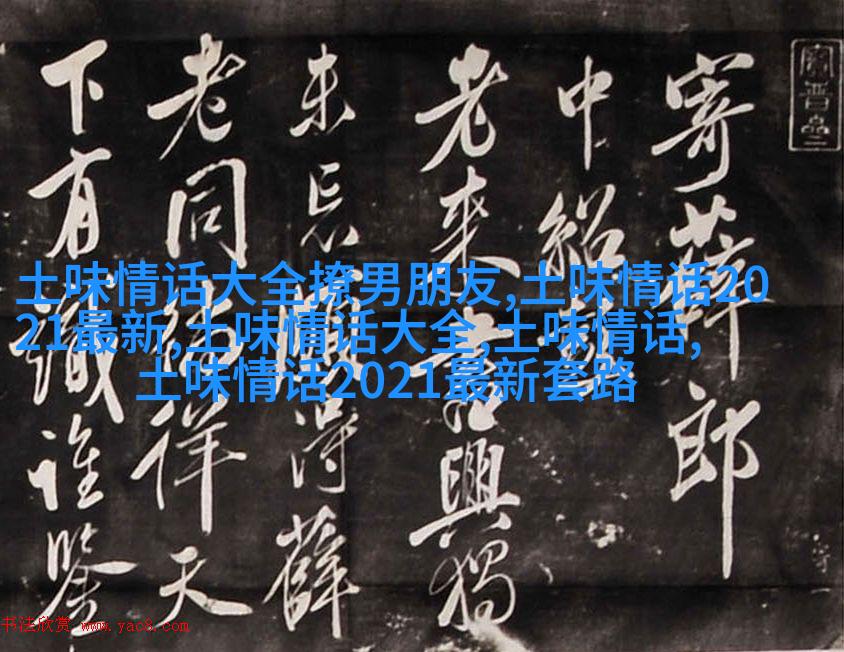 寄薛郎
中紹彭
老来書興獨
未忘頗得薛
老同徜徉天
下有識誰鑒
土味情话大全撩男朋友,土味情话20
21最新,土味情话大全,土味情话,
土味情话2021最新套路
书法欣赏 www.yac8.com